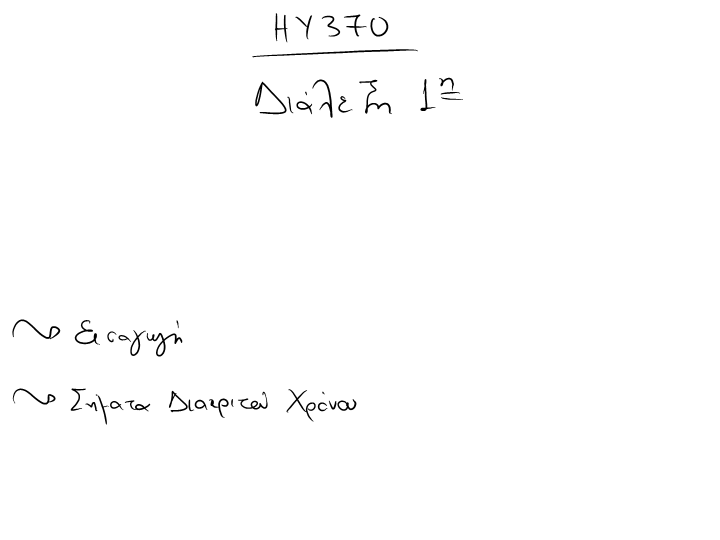 ΗΥ370
Διάλεξη 1η
Εισαγωγή
Σήματα Διακριτού Χρόνου